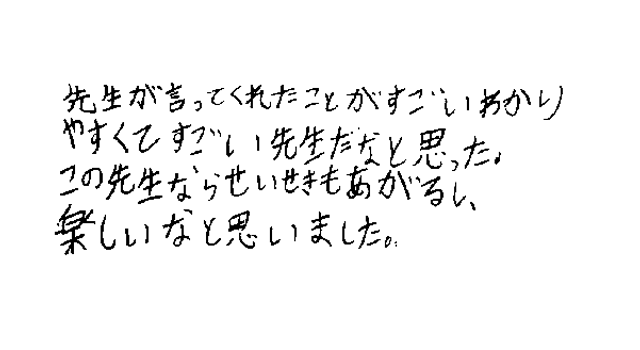 先生が言ってくれたことがすごいわかり
やすくてすごい先生だなと思った。
この先生ならせいせきもあがるし、
楽しいなと思いました。